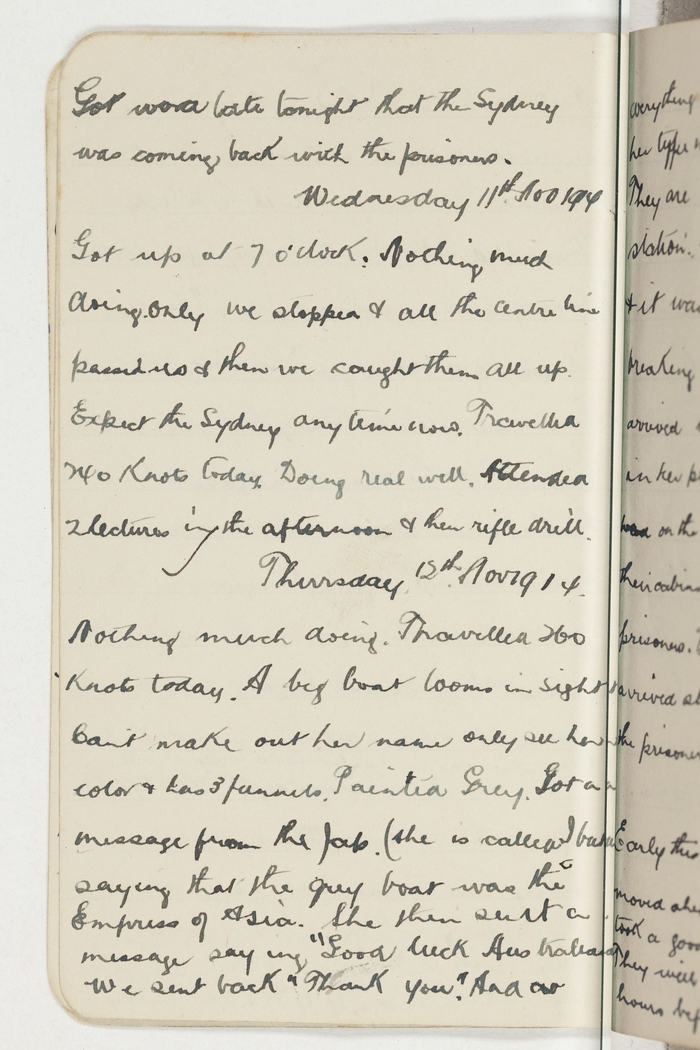 Got word late tonight that the Sydney
was coming back with the prisoners.
Wednesday 11th Nov 1914
Got up at 7 o'clock. Nothing much
doing. Only we stopped & all the centre line
passed us & then we caught them all up.
Expect the Sydney any time now. Travelled
240 Knots today. Doing real well. Attended
2 lectures in the afternoon & then rifle drill.
Thursday 12th Nov 1914.
Nothing much doing. Travelled 260
Knots today. A big boat looms in sight
Can't make out her name only see her
color & has 3 funnels. Painted Grey. Got a
message from the Jap. (she is called)
saying that the grey boat was the
Empress of Asia. She then sent a
message saying "Good luck Australians
We sent back "Thank you". And
everything
her
They are
station.
& it was
breaking
arrived
in her
on the
their cabins
prisoners.
arrived
the prisoners
Early this
moved
took a good
They will
hours